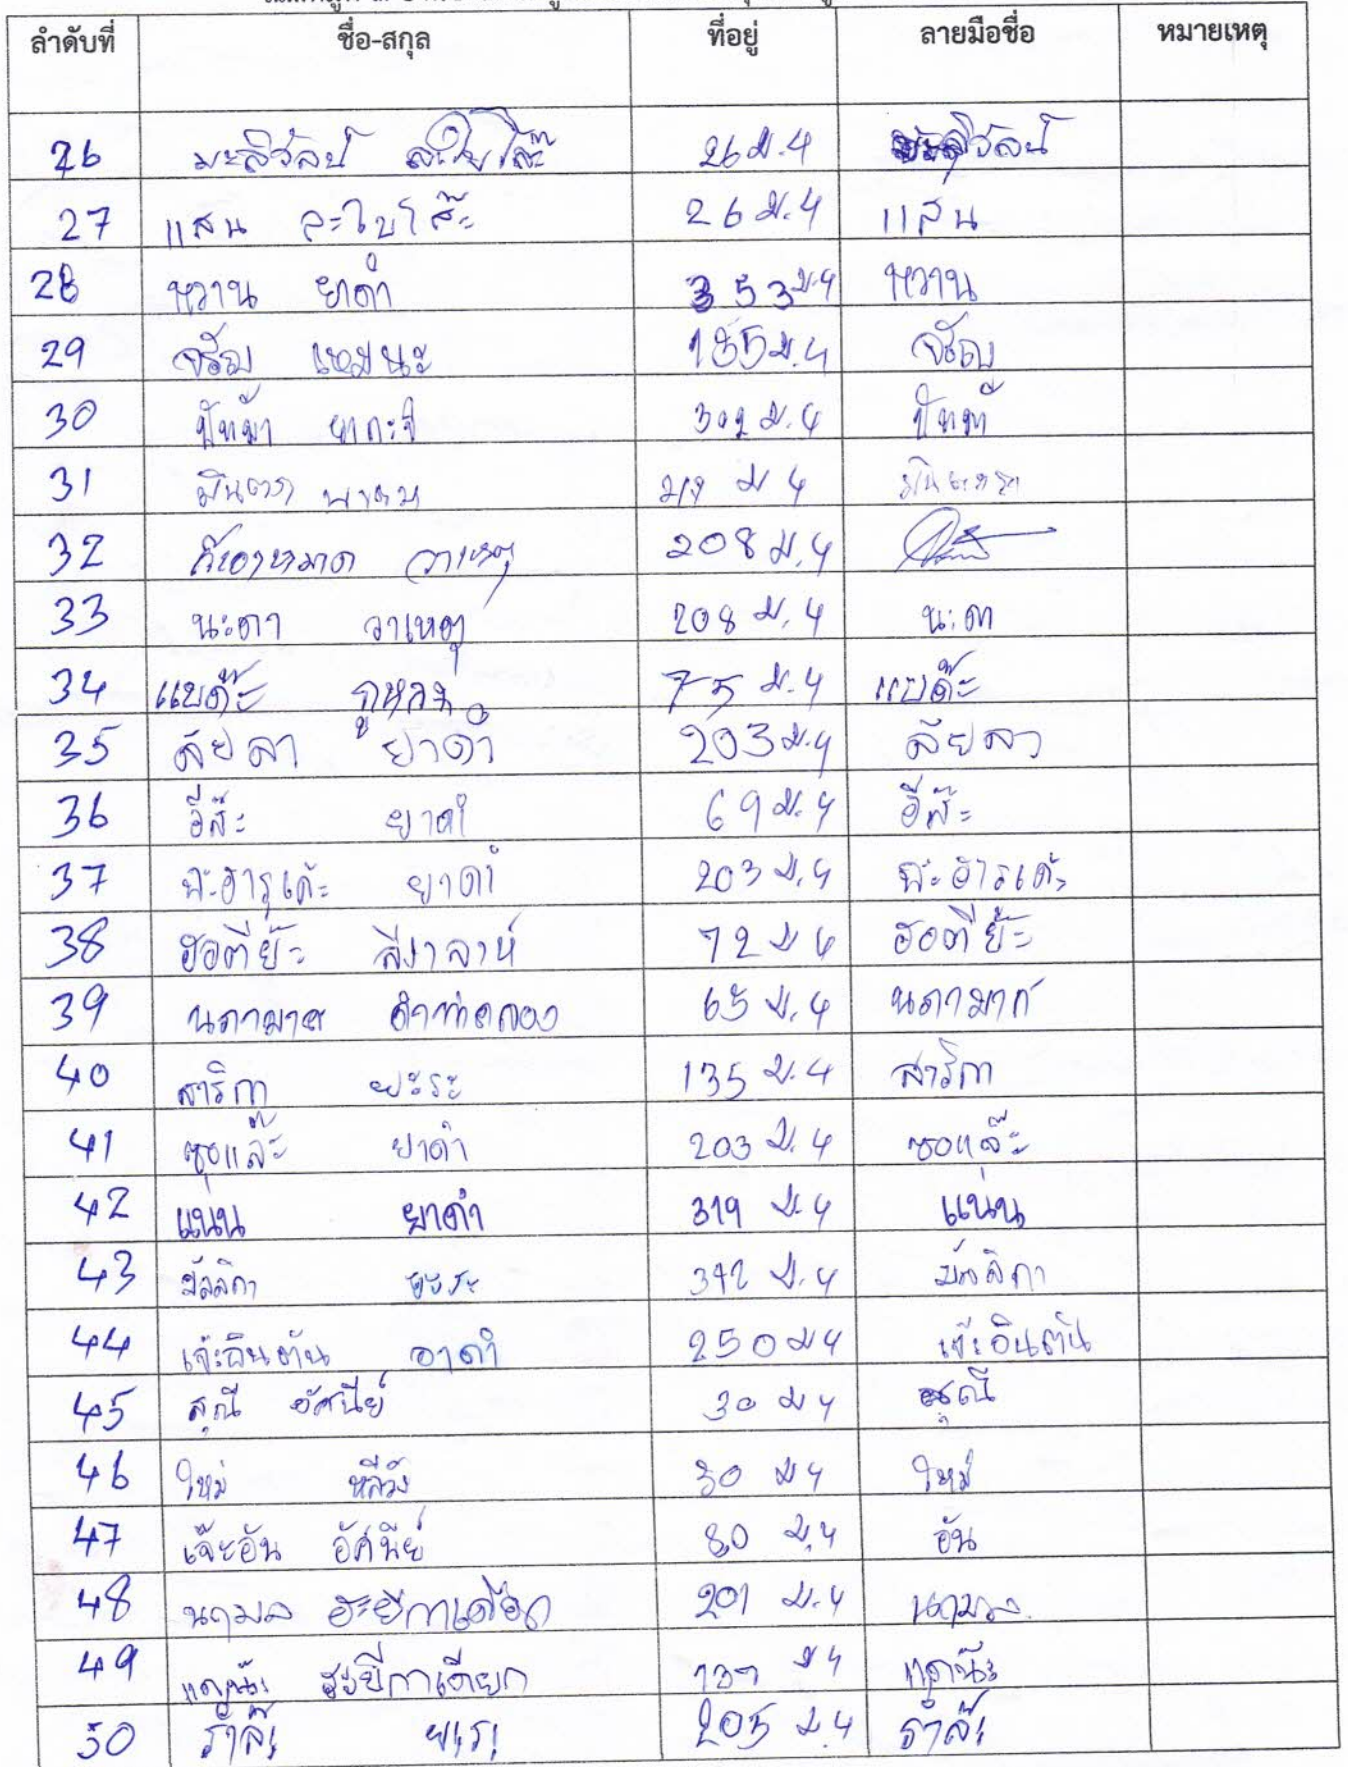 ลำดับที่ ชื่อ-สกุล ที่อยู่ ลายมือชื่อ หมายเหตุ
26 มะลิวัลน์ 26 ม.4 มะลิวัลน์
27 แสน ละใบโส๊ะ 26 ม.4 แสน
28 หวาน ยาดำ 353 ม.4 หวาน
29 จรัญ เหมนะ 185 ม.4 จรัญ
30 ม.4
31 มินตรา ม 4
32 วาเหตุ 208 ม.4
33 นะดา วาเหตุ 208 ม.4 นะดา
34 แบด๊ะ กูหลัง 75 ม.4 แบด๊ะ
35 ลัยลา ยาดำ 203 ม.4 ลัยลา
36 อีส๊ะ ยาดำ 69 ม.4 อีส๊ะ
37 ยาดำ 203 ม.4
38 ฮอตีย๊ะ สีงาลาห์ 72 ม 4 ฮอตีย๊ะ
39 นภามาศ 65 ม.4 นภามาศ
40 สาริกา ยะระ 135 ม.4 สาริกา
41 ซอแล๊ะ ยาดำ 203 ม.4 ซอแล๊ะ
42 แน่น ยาดำ 319 ม.4 แน่น
43 มัลลิกา ยะระ 342 ม.4 มัลลิกา
44 เจ๊ะอินตัน อาดำ 250 ม 4 เจ๊ะอินตัน
45 สุณี อัศนีย์ 30 ม 4 สุณี
46 ใหม่ หลีวัง 30 ม 4 ใหม่
47 เจ๊ะอัน อัศนีย์ 80 ม.4 อัน
48 นฤมล ฮะยีกาเดียก 201 ม.4 นฤมล
49 ฮะยีกาเดียก ม 4
50 รำล๊ะ ยะระ 205 ม.4 รำล๊ะ